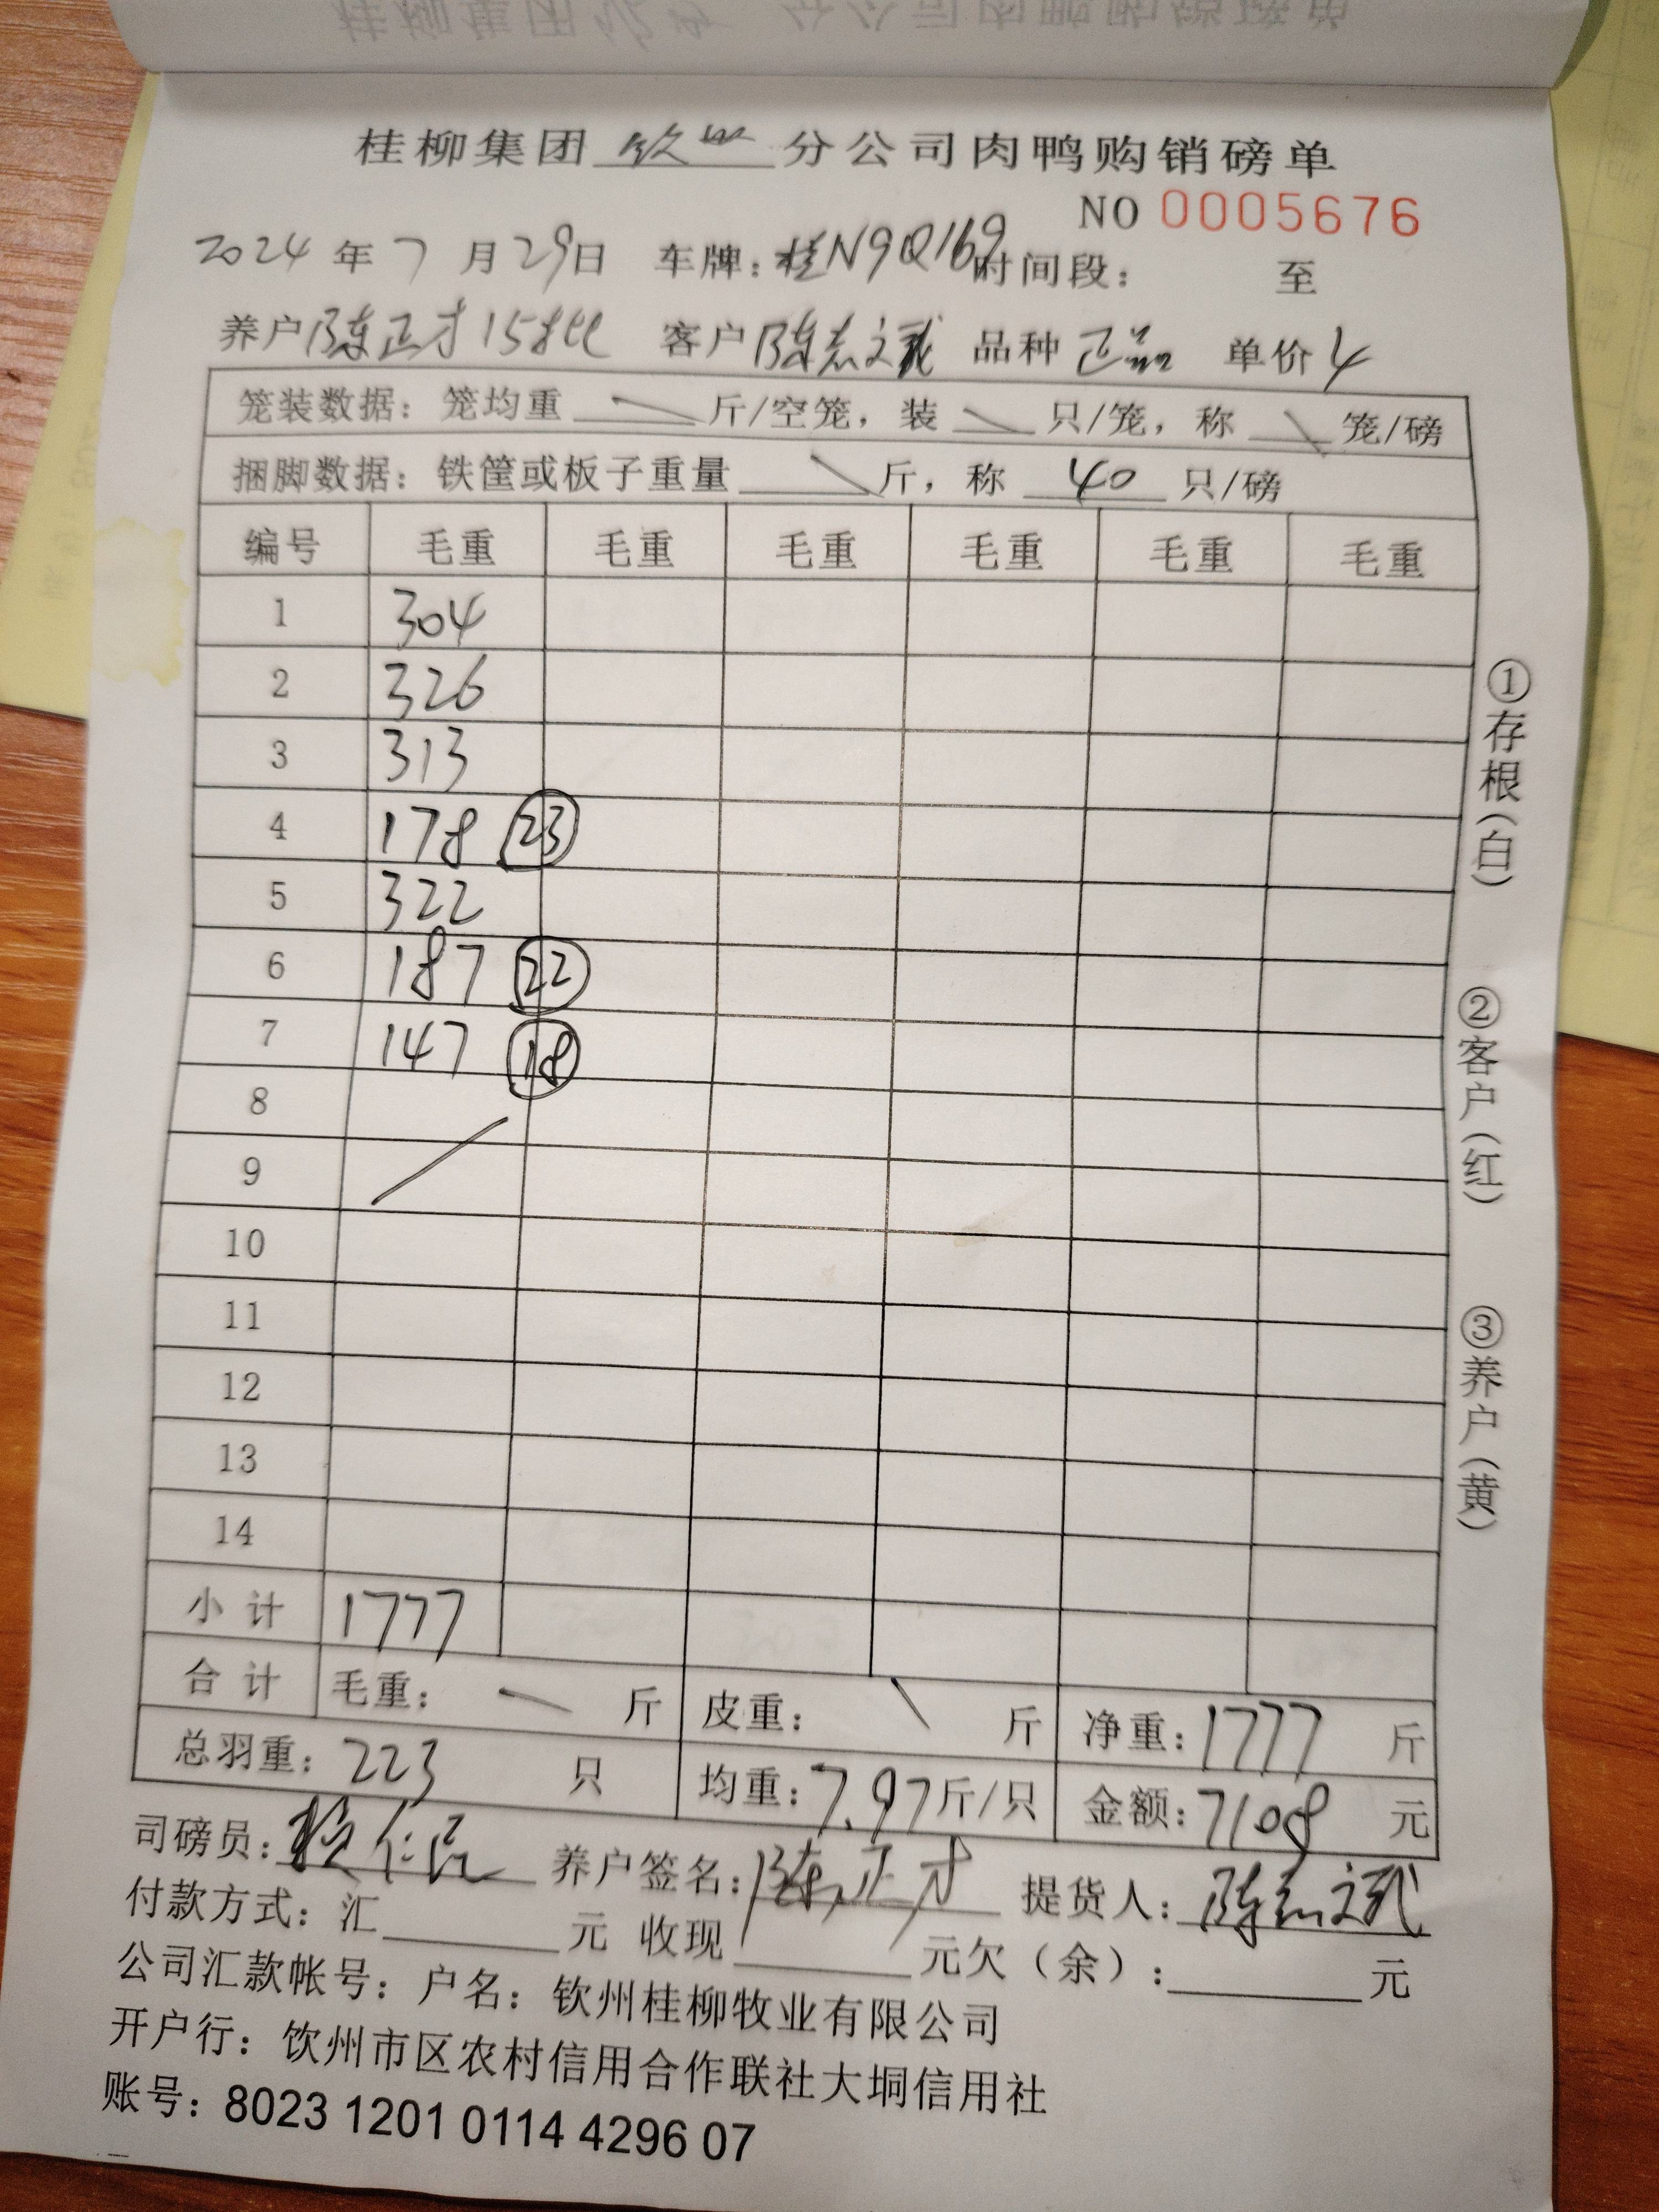 桂柳集团 钦州 分公司肉鸭购销磅单
NO 0005676
2024 年 7 月 29日 车牌：桂N9Q169 时间段： 至
养户 陈正才 15批 客户 陈志斌 品种 正品 单价 4
笼装数据：笼均重 \ 斤/空笼，装 \ 只/笼，称 \ 笼/磅
捆脚数据：铁筐或板子重量 \ 斤，称 40 只/磅
编号 毛重 毛重 毛重 毛重 毛重 毛重
1 304
2 326
3 313
4 178 23
5 322
6 187 22
7 147 18
8
9
10
11
12
13
14
小计 1777
合计 毛重： \ 斤 皮重： \ 斤 净重：1777 斤
总羽重：223 只 均重：7.97斤/只 金额：7108 元
司磅员： 养户签名：陈正才 提货人：陈志斌
付款方式：汇 元 收现 元欠（余）： 元
公司汇款帐号：户名：钦州桂柳牧业有限公司
开户行：饮州市区农村信用合作联社大垌信用社
账号：8023 1201 0114 4296 07
①存根（白）
②客户（红）
③养户（黄）